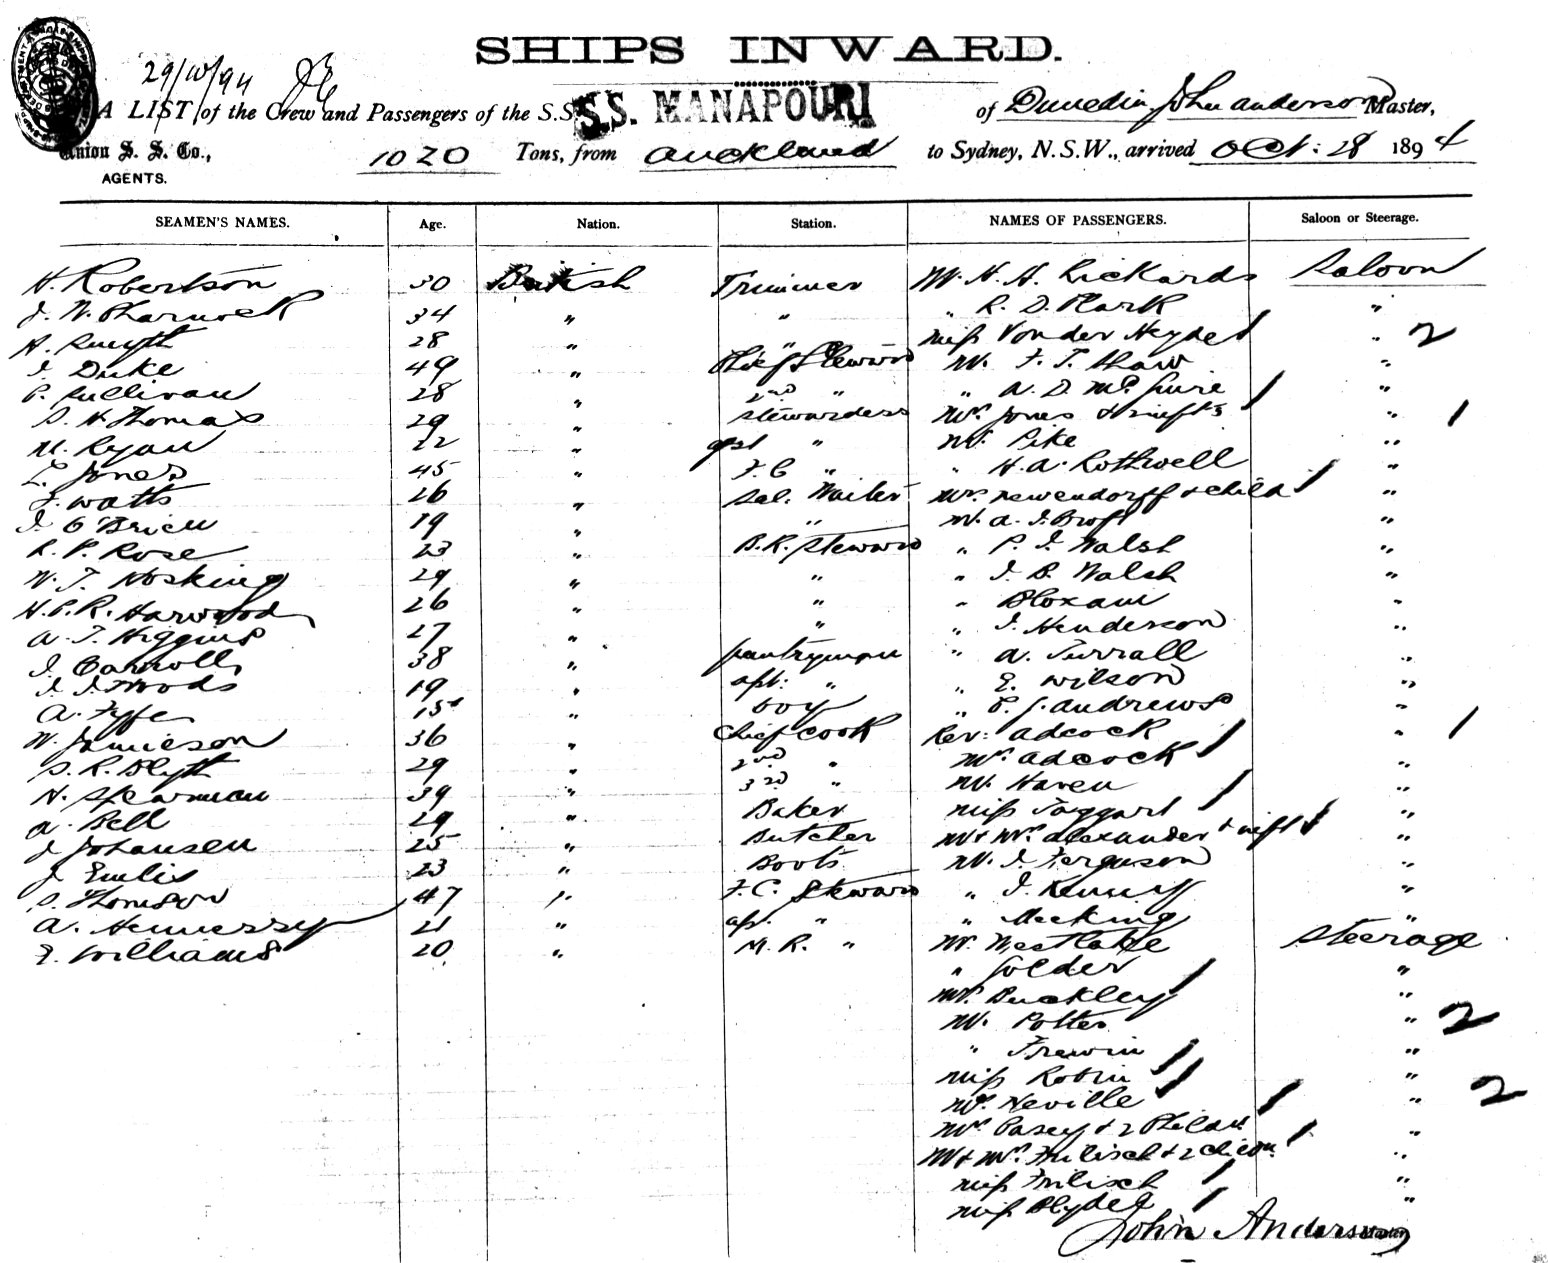 SHIPS INWARD.
29/10/94
A LIST of the Crew and Passengers of the S.S. S.S. MANAPOURI of Dunedin, John Anderson Master,
Union S. S. Co., 1020 Tons, from Auckland to Sydney, N.S.W., arrived Oct: 28 1894
AGENTS.
SEAMEN'S NAMES. Age. Nation. Station. NAMES OF PASSENGERS. Saloon or Steerage.
H. Robertson 30 British Trimmer Mr. H. H. Rickards Saloon
J. W. 34 " " " R. D. Clark "
A. Smyth 28 " " Miss Von der Heyde " 2
J. Duke 49 " Chief Steward Mr. F. T. Shaw "
P. Sullivan 28 " 2nd " " A. D. McGuire "
S. H. Thomas 29 " Stewardess Mrs Jones " 1
M. Ryan 22 " asst " Mr. Pike "
L. Jones 45 " F. C " " H. A. Rothwell "
F. Watts 26 " Sal. Waiter Mrs Newendorff & child "
J. O'Brien 19 " " Mr. A. J. "
R. P. Rose 23 " B.R. Steward " P. J. Walsh "
W. T. Hosking 29 " " " J. B. Walsh "
H. P. R. Harwood 26 " " " Bloxam "
A. T. Higgins 27 " " " J. Henderson "
J. Carroll 38 " pantryman " A. Turrall "
J. J. Woods 19 " asst: " " E. Wilson "
A. Fyfe 15 " boy " P. J. Andrews "
W. Jamieson 36 " Chief Cook Rev: Adcock " 1
S. R. Blyth 29 " 2nd " Mrs Adcock "
H. Spearman 39 " 3rd " Mr. Haven "
A. Bell 29 " Baker Miss Taggart "
J Johansen 25 " Butcher Mr & Mrs Alexander & inft "
J 23 " Boots Mr. J. Ferguson "
S. Thomson 47 " F. C. Steward " J. Kenny "
A. Hennessy 21 " as. " " Meeking "
E. Williams 20 " M. R. " Mr. Westlake Steerage
" Golder "
Mrs. Buckley "
Mr. Potter " 2
" Trewin "
Miss Robin "
Mrs. Neville " 2
Mrs Pasey & 2 Child. "
Mr & Mrs. & 2 Child. "
Miss "
Miss Blyde "
John Anderson Master